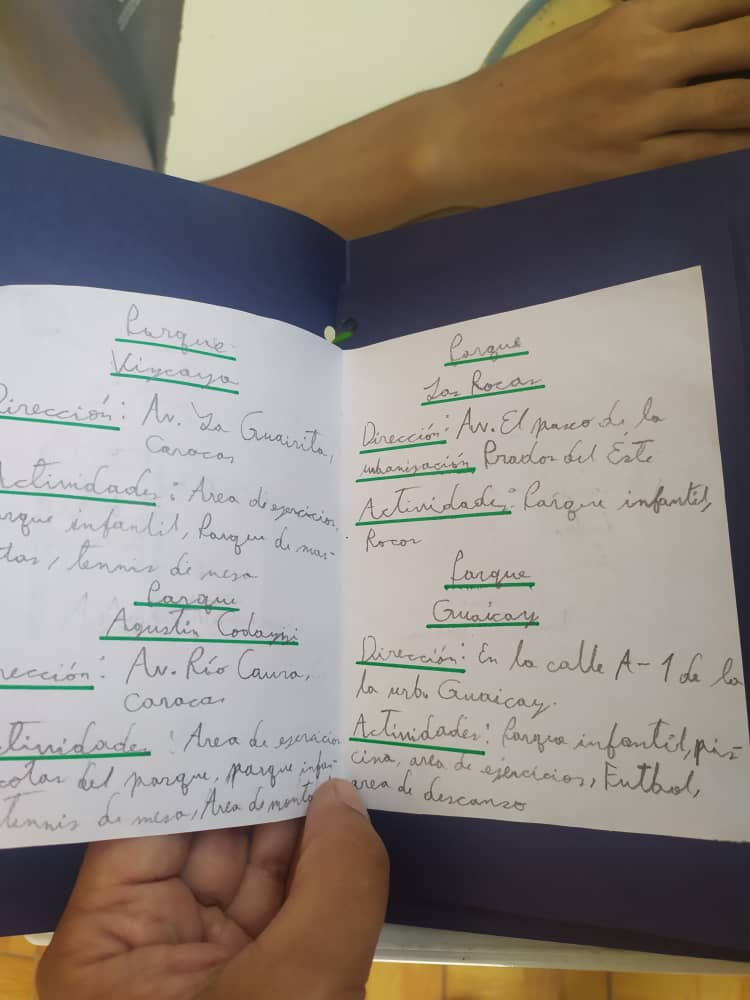 Parque
Vizcaya
Dirección: Av. La Guairita,
Caracas
Actividades: Area de ejercicios,
arque infantil, Parque de mas-
otas, tennis de mesa
Parque
Agustín Codazzi
rección: Av. Río Caura,
Caracas
ctividades: Area de ejercicios
cotas del parque, parque infan-
tennis de mesa, Area de monta
Parque
Las Rocas
Dirección: Av. El paseo de la
urbanización, Prados del Este
Actividades: Parque infantil,
Rocas
Parque
Guaicay
Dirección: En la calle A-1 de la
la urb. Guaicay.
Actividades: Parque infantil, pis-
cina, area de ejercicios, Futbol,
area de descanso